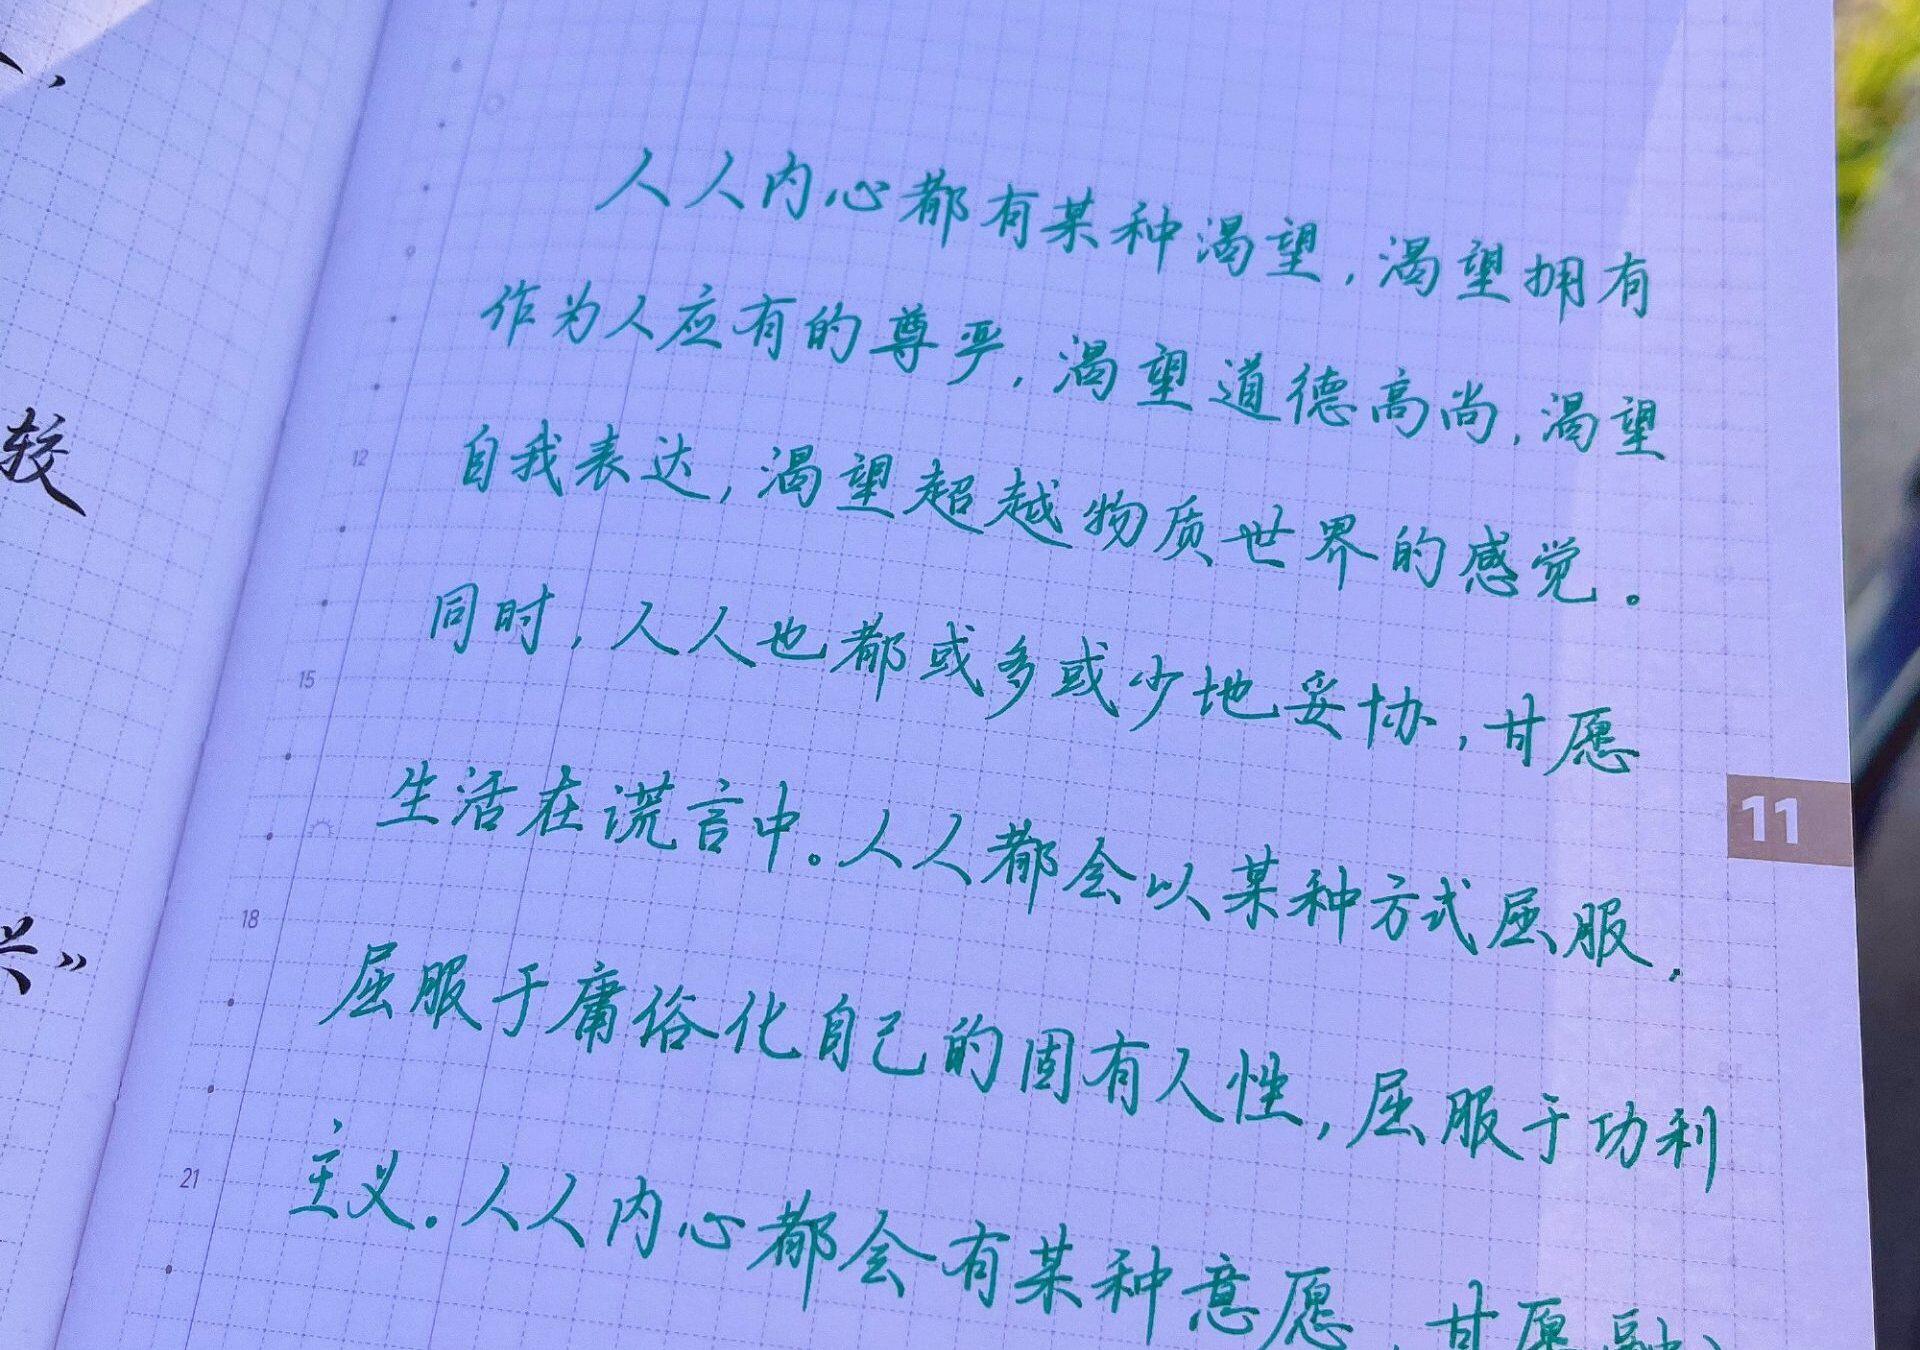 人人内心都有某种渴望,渴望拥有
作为人应有的尊严,渴望道德高尚,渴望
自我表达,渴望超越物质世界的感觉。
同时,人人也都或多或少地妥协,甘愿
生活在谎言中。人人都会以某种方式屈服,
屈服于庸俗化自己的固有人性,屈服于功利
主义。人人内心都会有某种意愿,甘愿融
较
兴”
12
15
18
21
11